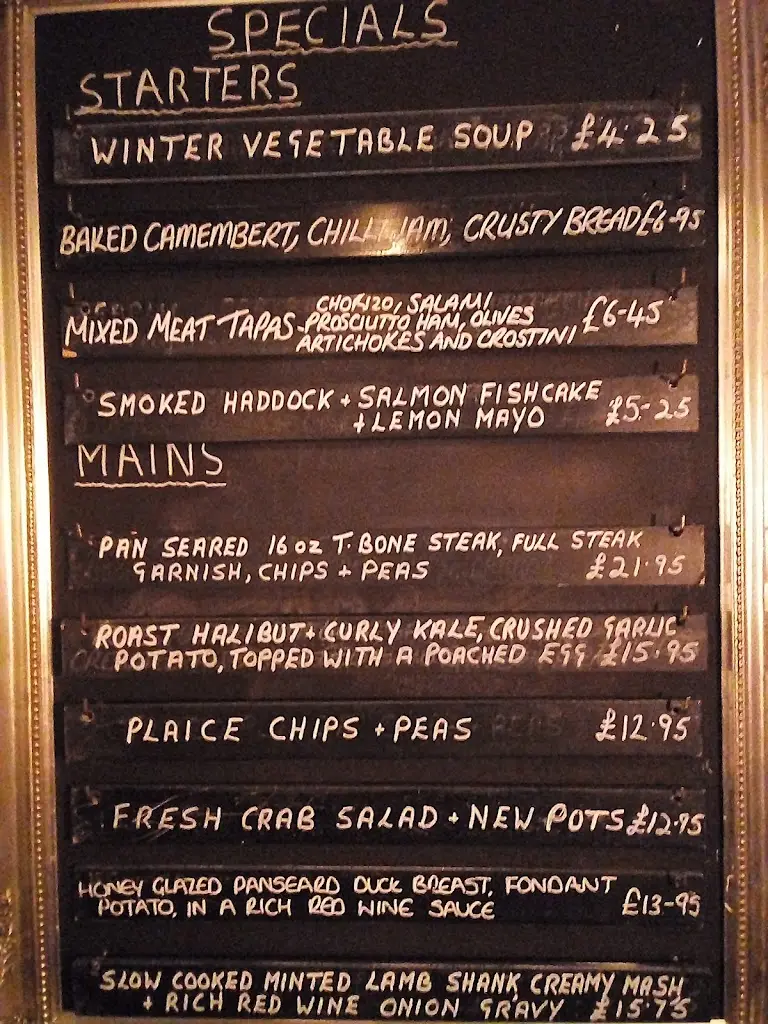 SPECIALS
STARTERS
WINTER VEGETABLE SOUP £4.25
BAKED CAMEMBERT, CHILLI JAM, CRUSTY BREAD £6-95
MIXED MEAT TAPAS - CHORIZO, SALAMI
PROSCIUTTO HAM, OLIVES £6-45
ARTICHOKES AND CROSTINI
SMOKED HADDOCK + SALMON FISHCAKE
+ LEMON MAYO £5-25
MAINS
PAN SEARED 16oz T.BONE STEAK, FULL STEAK
GARNISH, CHIPS + PEAS £21.95
ROAST HALIBUT + CURLY KALE, CRUSHED GARLIC
POTATO, TOPPED WITH A POACHED EGG £15.95
PLAICE CHIPS + PEAS £12.95
FRESH CRAB SALAD + NEW POTS £12.95
HONEY GLAZED PANSEARD DUCK BREAST, FONDANT
POTATO, IN A RICH RED WINE SAUCE £13-95
SLOW COOKED MINTED LAMB SHANK, CREAMY MASH
+ RICH RED WINE ONION GRAVY £15.75